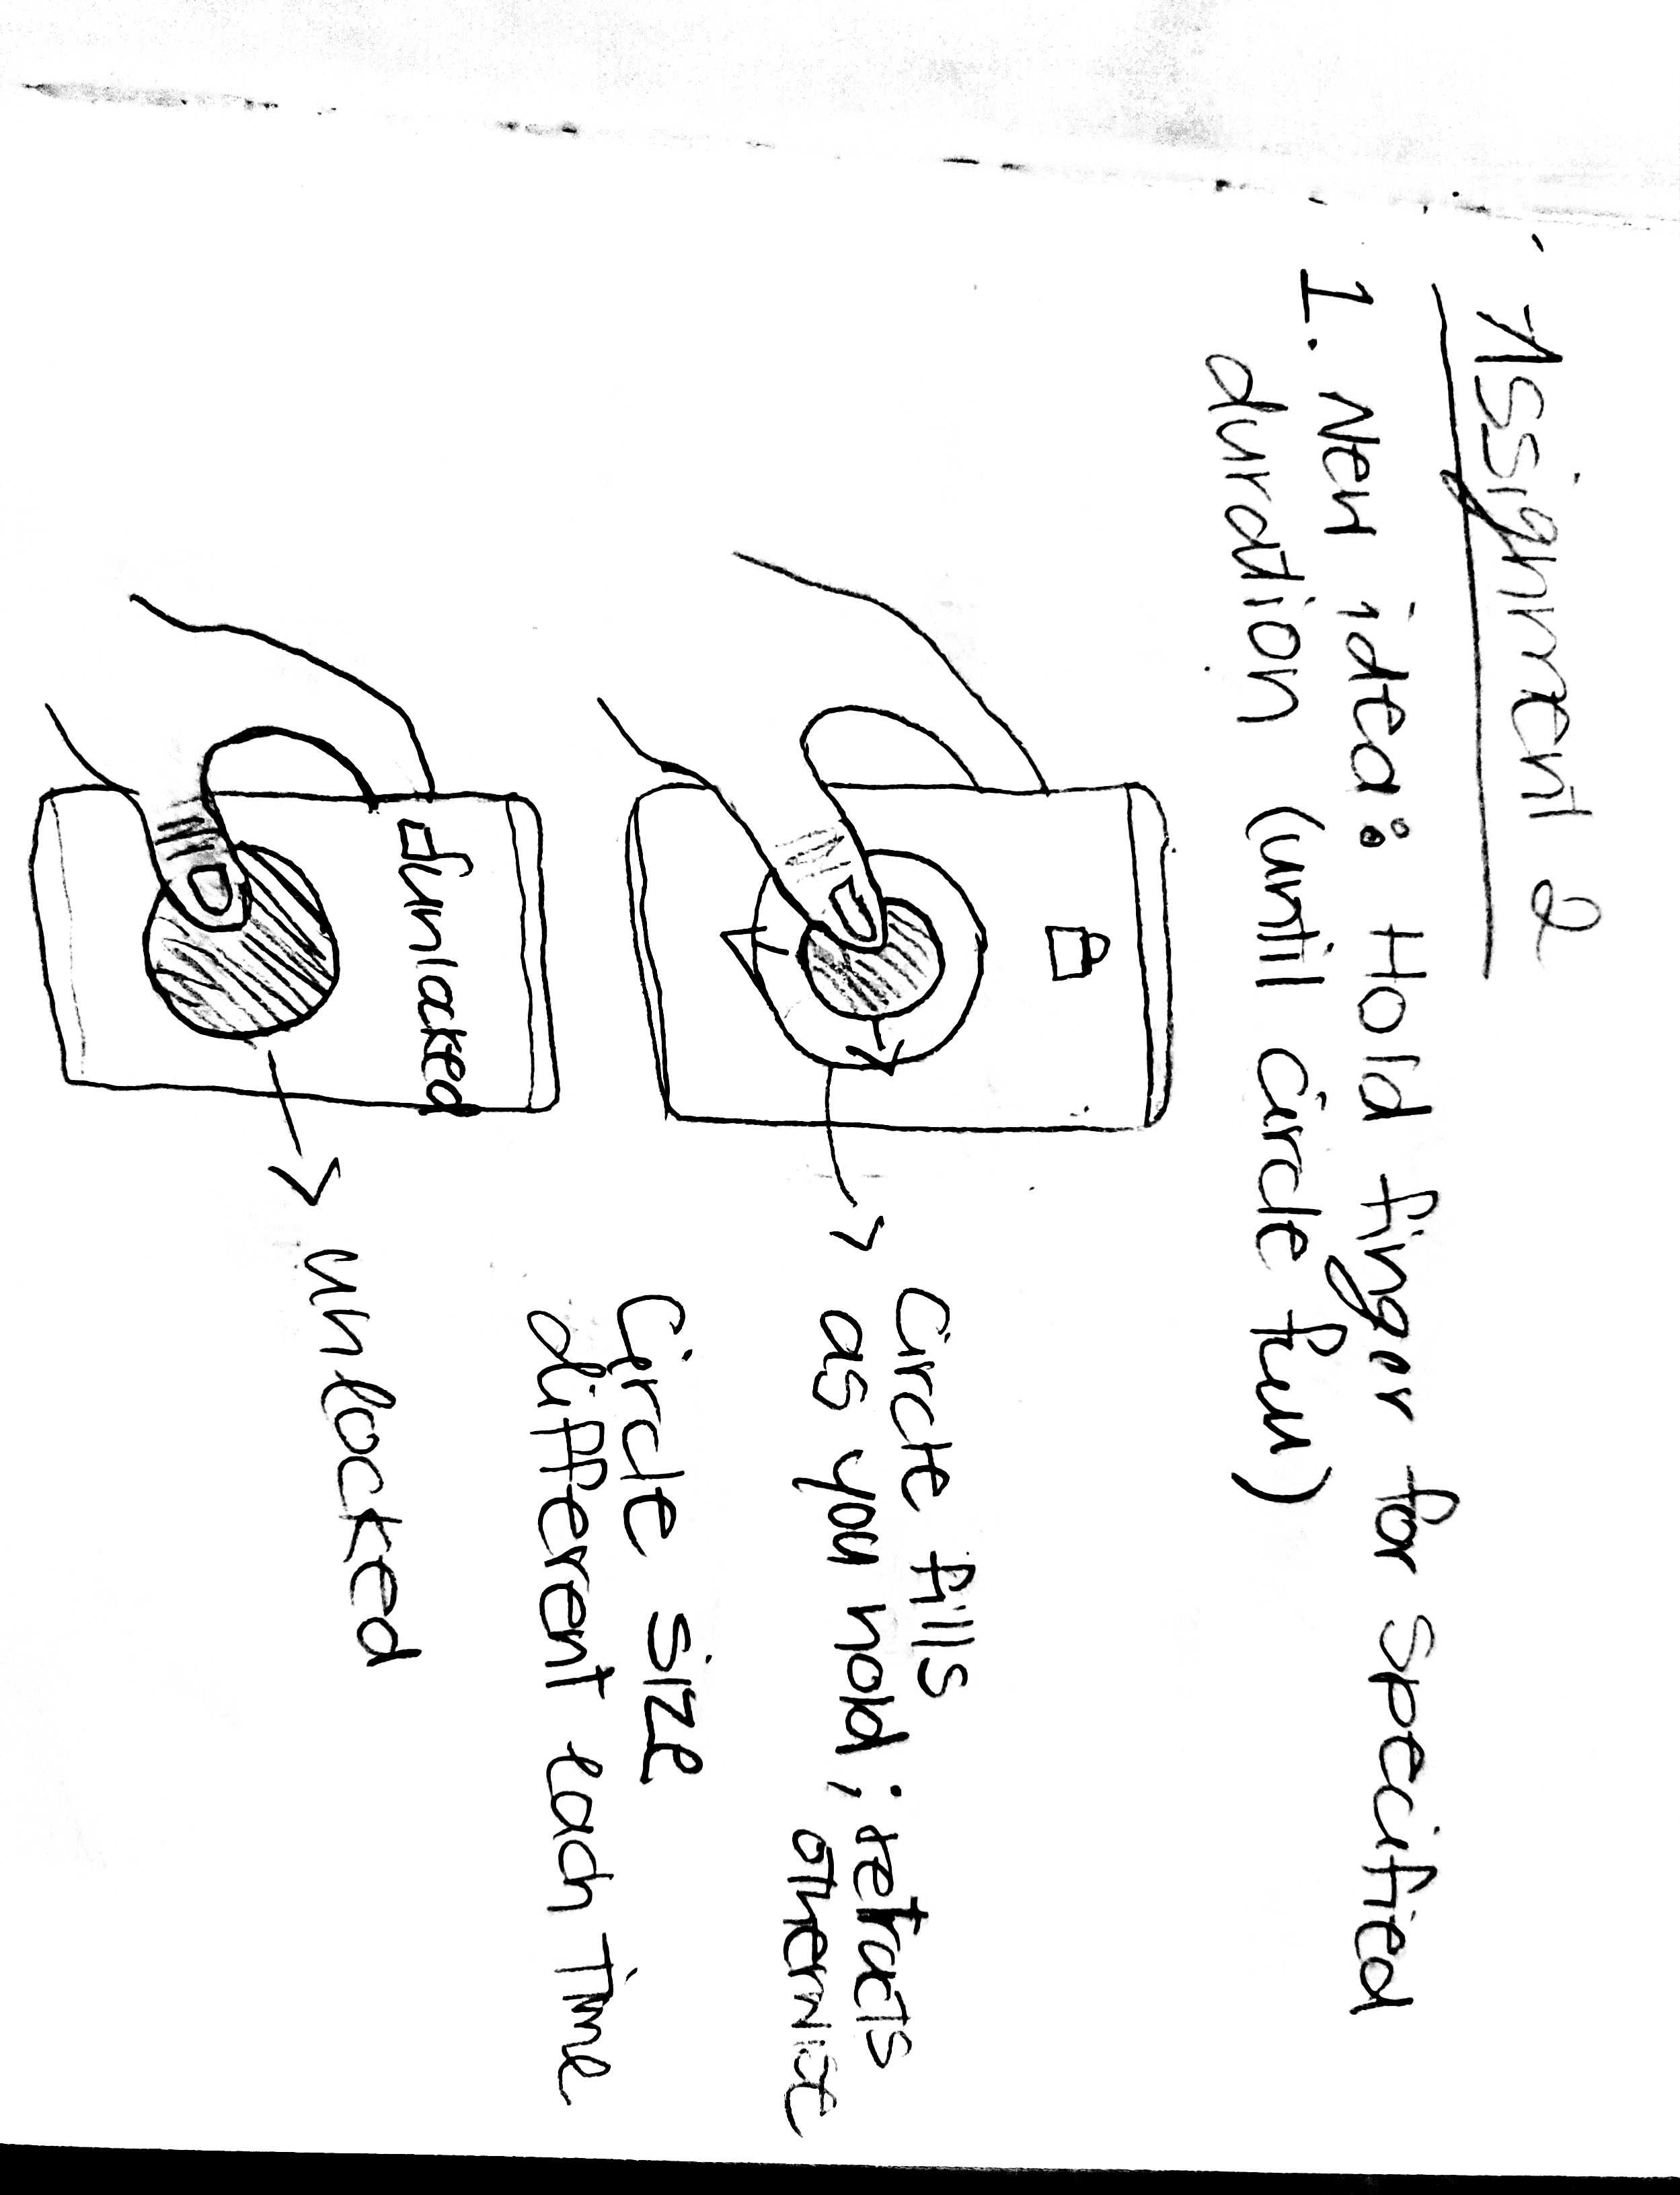 Assignment 2
1. New idea: Hold finger for specified
duration (until circle full)
Circle fills
as you hold; retracts
otherwise
Circle size
different each time
unlocked
unlocked